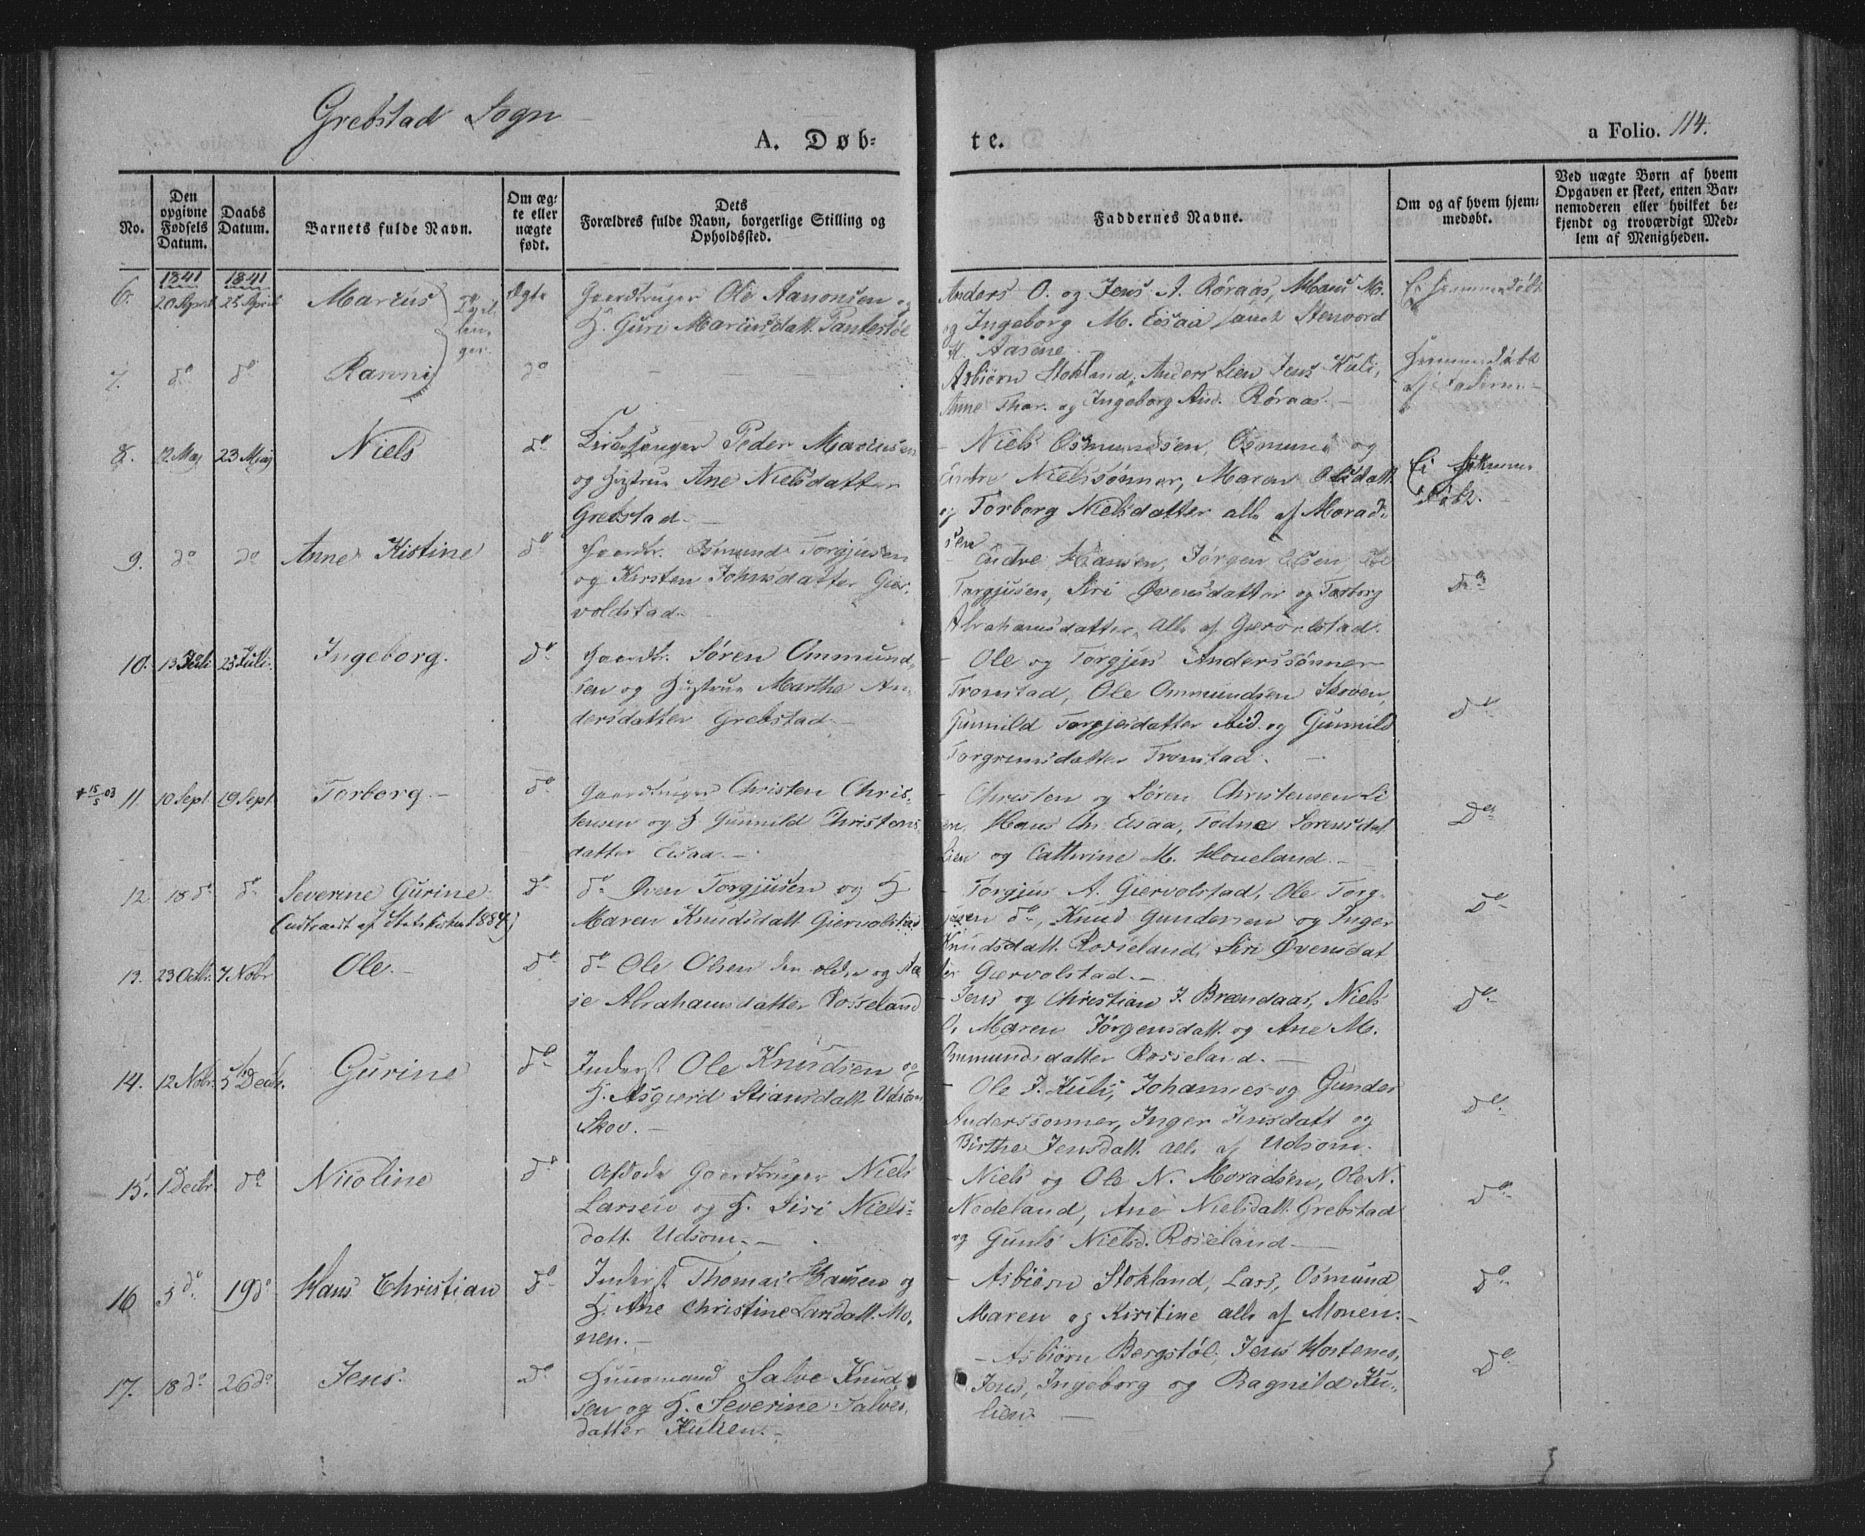 Grebstad Sogn
A. Døb-
te.
a Folio. 114.
No.
Den
opgivne
Fødsels
Datum.
Daabs
Datum.
Barnets fulde Navn.
Om æg-
te eller
uægte
født.
Dets
Forældres fulde Navn, borgerlige Stilling og
Opholdssted.
Faddernes Navne.
Om og af hvem hjem-
medøbt.
Ved uægte Børn af hvem
Opgaven er skeet, enten Bar-
nemoderen eller hvilket be-
kjendt og troværdigt Med-
lem af Menigheden.
1841 1841
6. 20 April 25 April Marius Tvil-
lin-
ger
Ægte
Gaardbruger Ole Aanonsen og
H. Guri Mariusdatt. Tantestøl
Anders O. og Jens A. Røraas, Hans M.
og Ingeborg M. Eesaa samt Stenvord
H. Aasene.
Ei hjemmedøbt
7. do do Ranni do
Asbiørn Stokland, Anders Lien Jens Kuli,
Anne Thor. og Ingeborg And. Røraas.
Hjemmedøbt
af Faderen
8. 12 Maj 23 Maj Niels do
Peder Mariusen
og Hustrue Ane Nielsdatter
Grebstad.
Niels Osmundsen, Osmund og
Endre Nielssønner, Maren Olsdatt.
og Torborg Nielsdatter alle af Morad-
sen
Ei hjemme-
døbt.
9. do do Anne Kistine do
Gaardbr. Osmund Torgjusen
og Kirsten Johnsdatter Gier-
voldstad.
Endre Hansen, Jørgen Olsen,
Torgjusen, Siri Øvensdatter og Torborg
Abrahamsdatter, alle af Giervolstad.
do
10. 13 Juli 25 Juli. Ingeborg. do
Gaardbr. Søren Ommund-
sen og Hustrue Marthe An-
dersdatter Grebstad.
Ole og Torgjus Anderssønner
Tromstad, Ole Ommundsen Skoen,
Gunnild Torgjeidatter ibid. og Gunnild
Torgrimsdatter Tromstad.
do
+ 15/5 03 11. 10 Sept 19 Sept Torborg. do
Gaardbruger Christen Chris-
tensen og H Gunnild Christens
datter Eisaa.
Christen og Søren Christensen Li
en. Hans Chr. Eisaa, Todne Sørensdat
Lien og Cathrine M. Hoveland.
do
12. 18 do do Severine Gurine do
(Udtraadt af Statskirken 1884)
do Øven Torgjusen og H
Maren Knudsdatt. Giervolstad
Torgjus A. Giervolstad, Ole Torg-
jusen do, Knud Gundersen og Inger
Knudsdatt. Rosseland, Siri Øvensdat
ter Giervolstad.
do
13. 23 Octbr. 7 Novbr Ole. do
do Ole Olsen den ældre og Aa-
se Abrahamsdatter Rosseland
Jens og Christian J. Brændaas, Niels
O. Maren Jørgensdatt. og Ane M.
Ommundsdatter Rosseland.
do
14. 12 Novbr. 5te Decbr. Gurine do
Inderst Ole Knudsen og
H. Asgierd Stiansdatt. Udsom
Skov.
Ole J. Kuli, Johannes og Gunder
Anderssønner, Inger Jensdatt og
Birthe Jensdatt. alle af Udsom.
do.
15. 1 Decbr. do Nicoline do
Afdøde Gaardbruger Niels
Larsen og H. Siri Niels-
datt. Udsom.
Niels og Ole N. Moradsen, Ole N.
Nodeland, Ane Nielsdatt. Grebstad
og Gunlø Nielsd. Rosseland.
do
16 5 do. 19 do Hans Christian do
Inderst Thomas Hansen og
H. Ane Christine Larsdatt. Mo-
nen.
Asbiørn Stokland, Lars, Osmund
Maren og Kirstine alle af Monen.
do
17. 18 do 26 do Jens. do
Huusmand Salve Knud
sen og H. Severine Salves
datter Kulien.
Asbiørn Bergstøl, Jens Hortenes,
Jens, Ingeborg og Ragnild Ku-
lien.
do